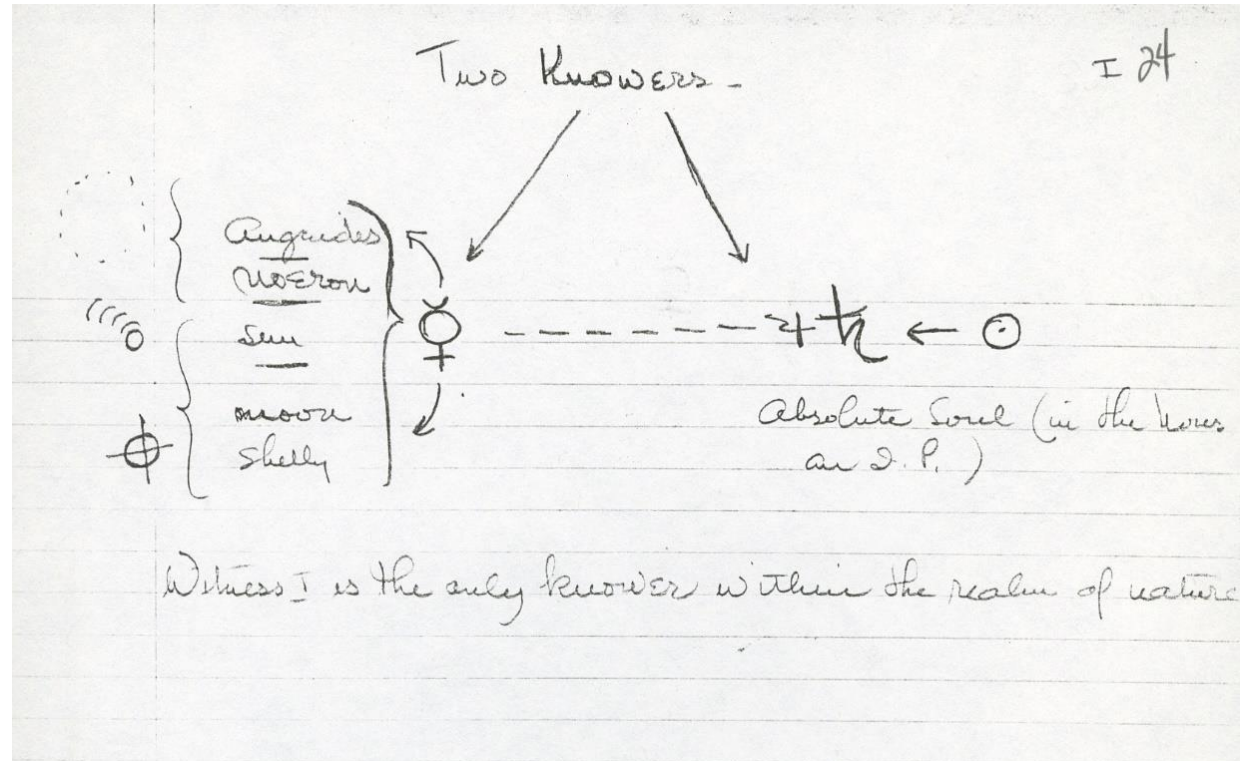 Two Knowers -
I 24
Augoides
Noeron
Sun
Moon
Shelly
☿ - - - - - - - ♃ ♄ ← ☉
Absolute Soul (in the
an I. P.)
Witness I is the only knower within the realm of nature